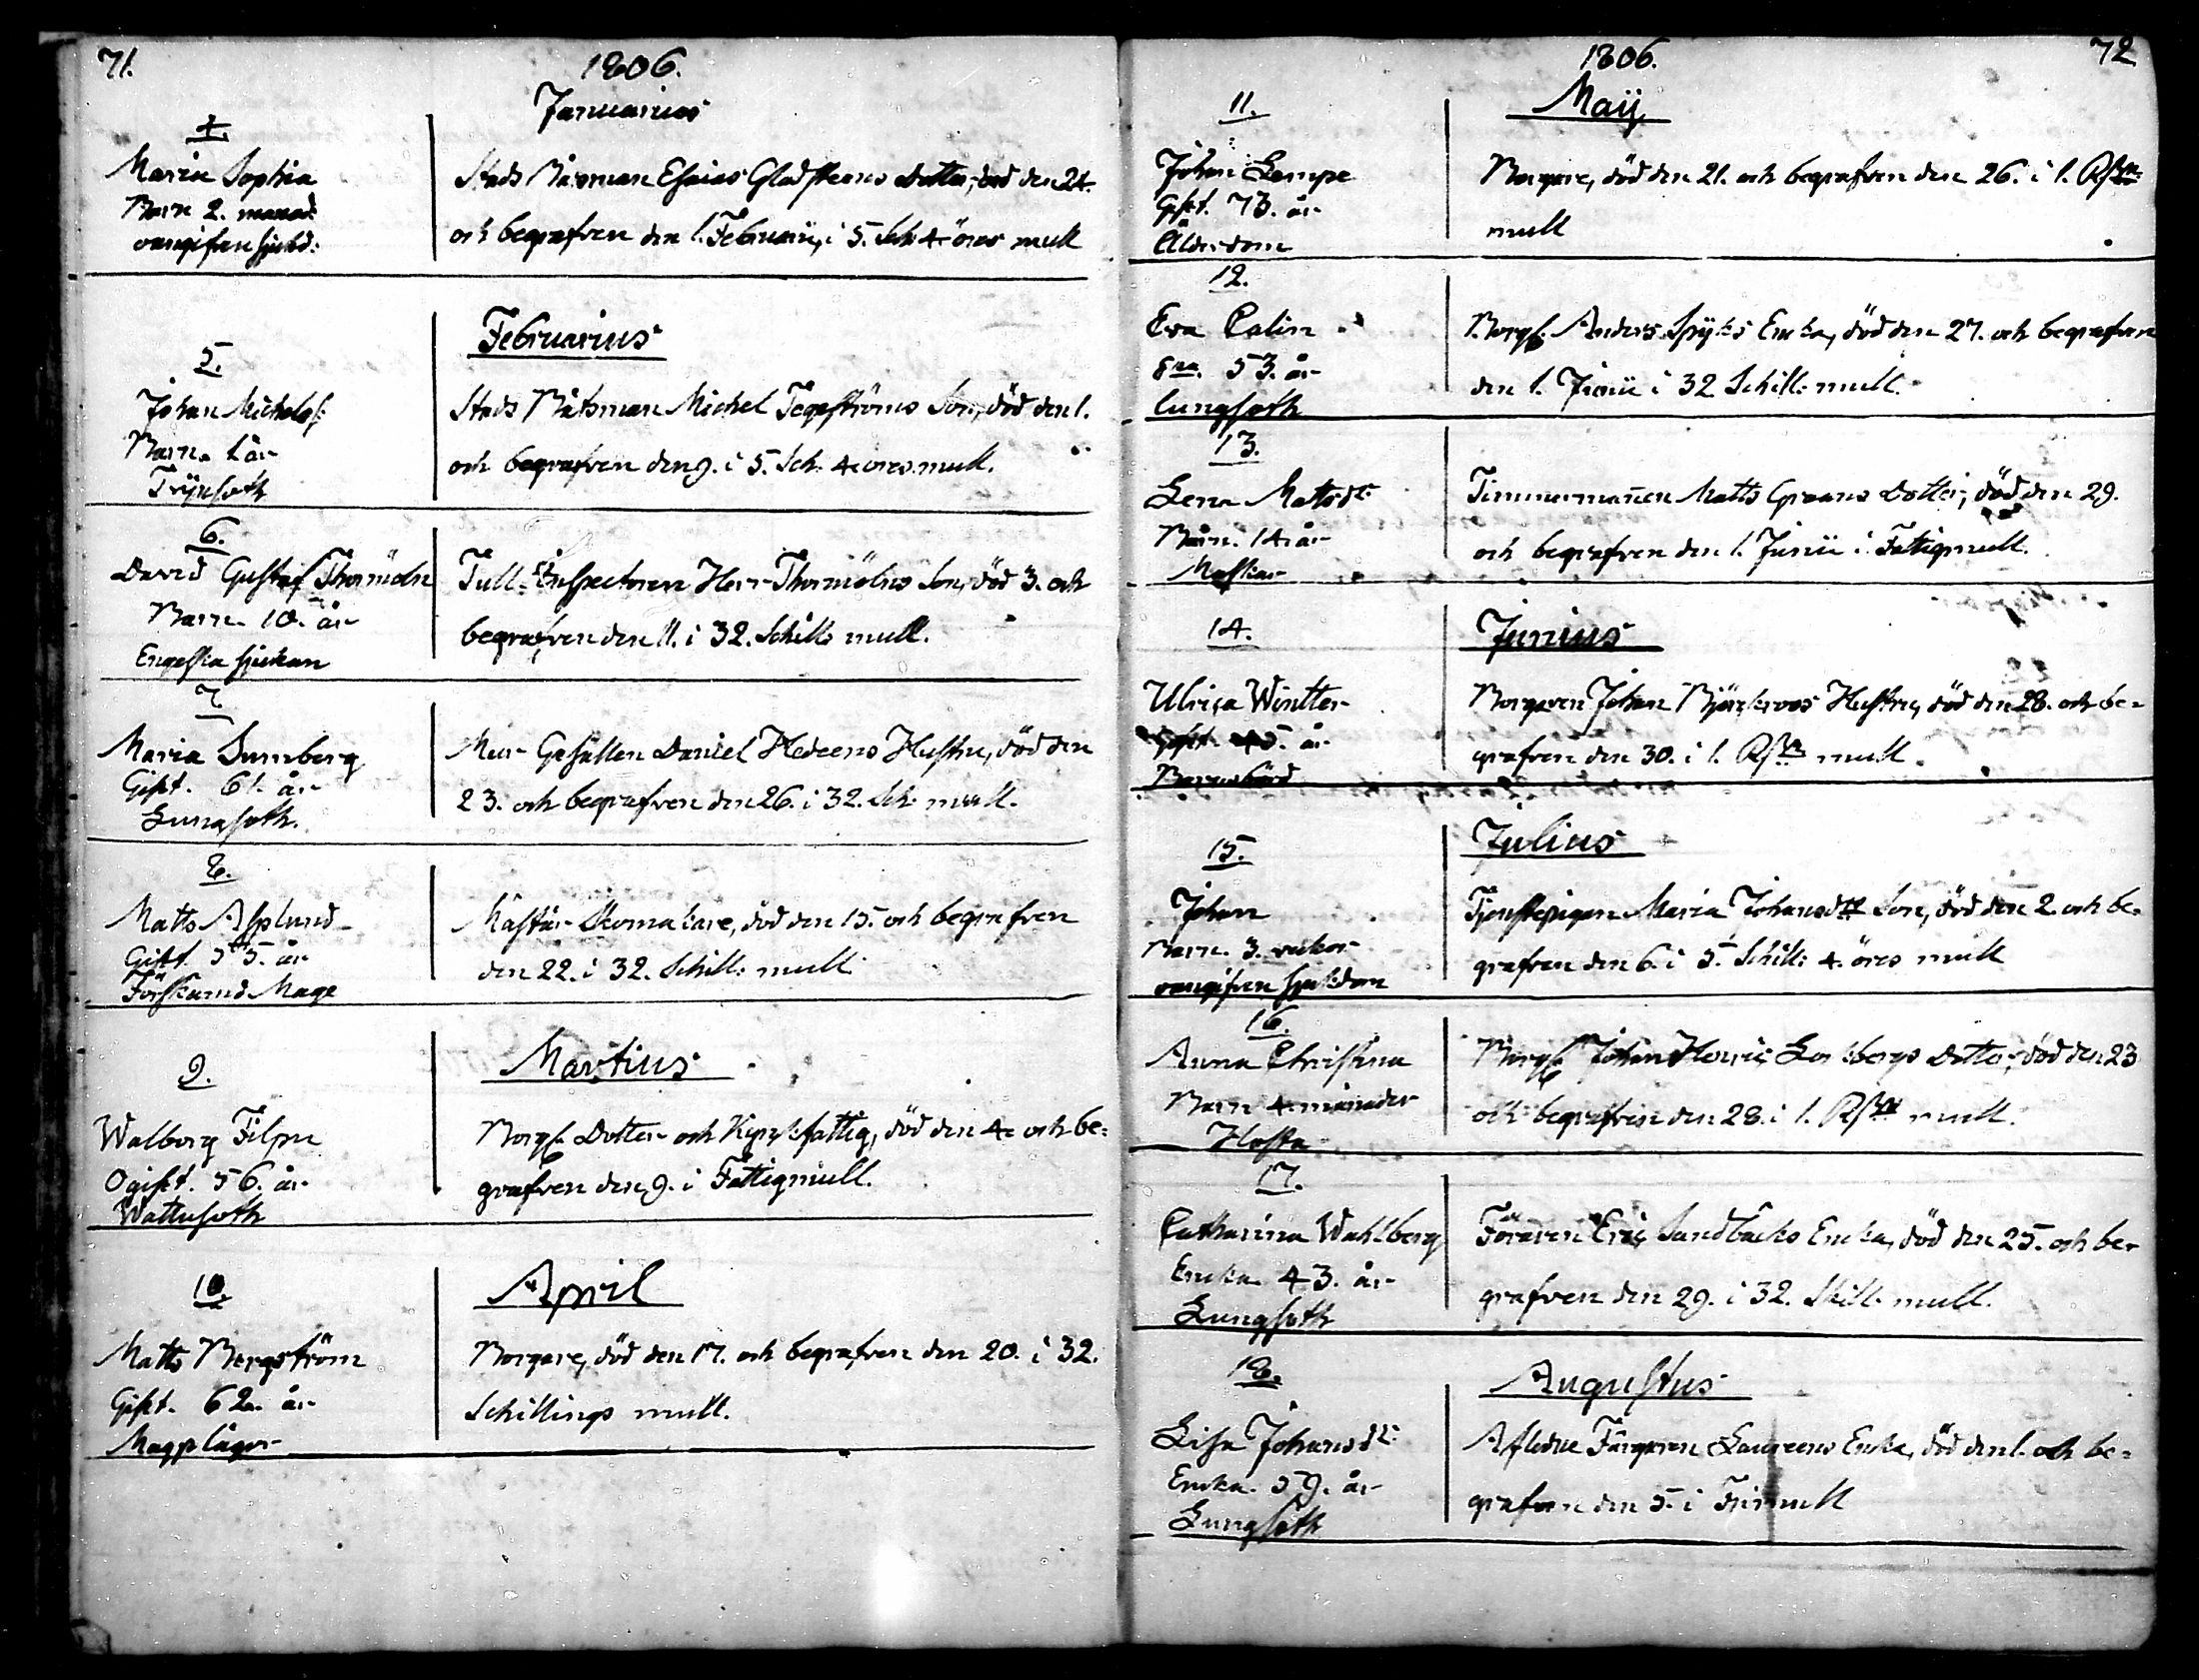 71.
1806.
Januarius
4.
Maria Sophia
Barn 2. månad:
oangifen sjukd:
Stads Båtsman Esaias Gladsteens Dotter, död den 24.
och begrafven den 1. Februarii, i 5. Sch: 4 öres mull
Februarius
5.
Johan Michelss:
Barn. 1 år
Trånsoth
Stads Båtsman Michel Tegelströms Son, död den 1.
och begrafven den 9. i 5. Sch: 4. öres mull.
6.
David Gustaf Thormöln
Barn. 10. år
Engelska sjukan
Tull-Inspectoren Herr Thormölns Son, död 3. och
begrafven den 11. i 32. Schill: mull.
7.
Maria Sunnberg
Gift. 61. år
Lungsoth.
Mur-Gesällen Daniel Hedeens Hustru, död den
23. och begrafven den 26. i 32. Sch: mull.
8.
Matts Asplund
Gift. 55. år
Förskämd Mage
Mästar Skomakare, död den 15. och begrafven
den 22. i 32. Schill: mull.
Martius
9.
Walborg Filpu
Ogift. 56. år
Wattusoth
Borgs: Dotter och Kyrkfattig, död den 4 och be-
grafven den 9. i Fattigmull.
April
10.
Matts Bergström
Gift. 62. år
Magplågor
Borgare, död den 17. och begrafven den 20. i 32.
Schillings mull.
1806.
72
Maij
11.
Johan Lempe
Gift. 73. år
Ålderdom
Borgare, död den 21. och begrafven den 26. i 1. Rsdr
mull
12.
Eva Calin
53. år
lungsoth
Borgs: Anders Spijks Encka, död den 27. och begrafven
den 1. Junii i 32 Schill: mull.
13.
Lena Matsdr
Barn. 14 år
Maskar
Timmermannen Matts Graans Dotter, död den 29.
och begrafven den 1. Junii i Fattigmull.
14.
Junius
Ulrica Wintter
Gift. 45. år
Barnsbörd
Borgaren Johan Björkroos Hustru, död den 28. och be-
grafven den 30. i 1. Rsdr mull.
15.
Julius
Johan
Barn. 3. veckor
oangifven sjukdom
Tjenstepigan Maria Johansdr Son, död den 2. och be-
grafven den 6. i 5. Schill: 4. öres mull
16.
Anna Christina
Barn 4 månader
Hosta
Borgs: Johan Henric Dotter, död den 23
och begrafven den 28. i 1. Rsdr mull.
17.
Catharina Wahlberg
Encka. 43. år
Lungsoth
Föraren Eric Sandbäcks Encka, död den 25. och be-
grafven den 29. i 32. Skill: mull.
18.
Augustus
Lisa Johansdr
Encka. 59. år
Lungsoth
Afledne Färgaren Laureens Encka, död den 1. och be-
grafven den 5. i Frimull